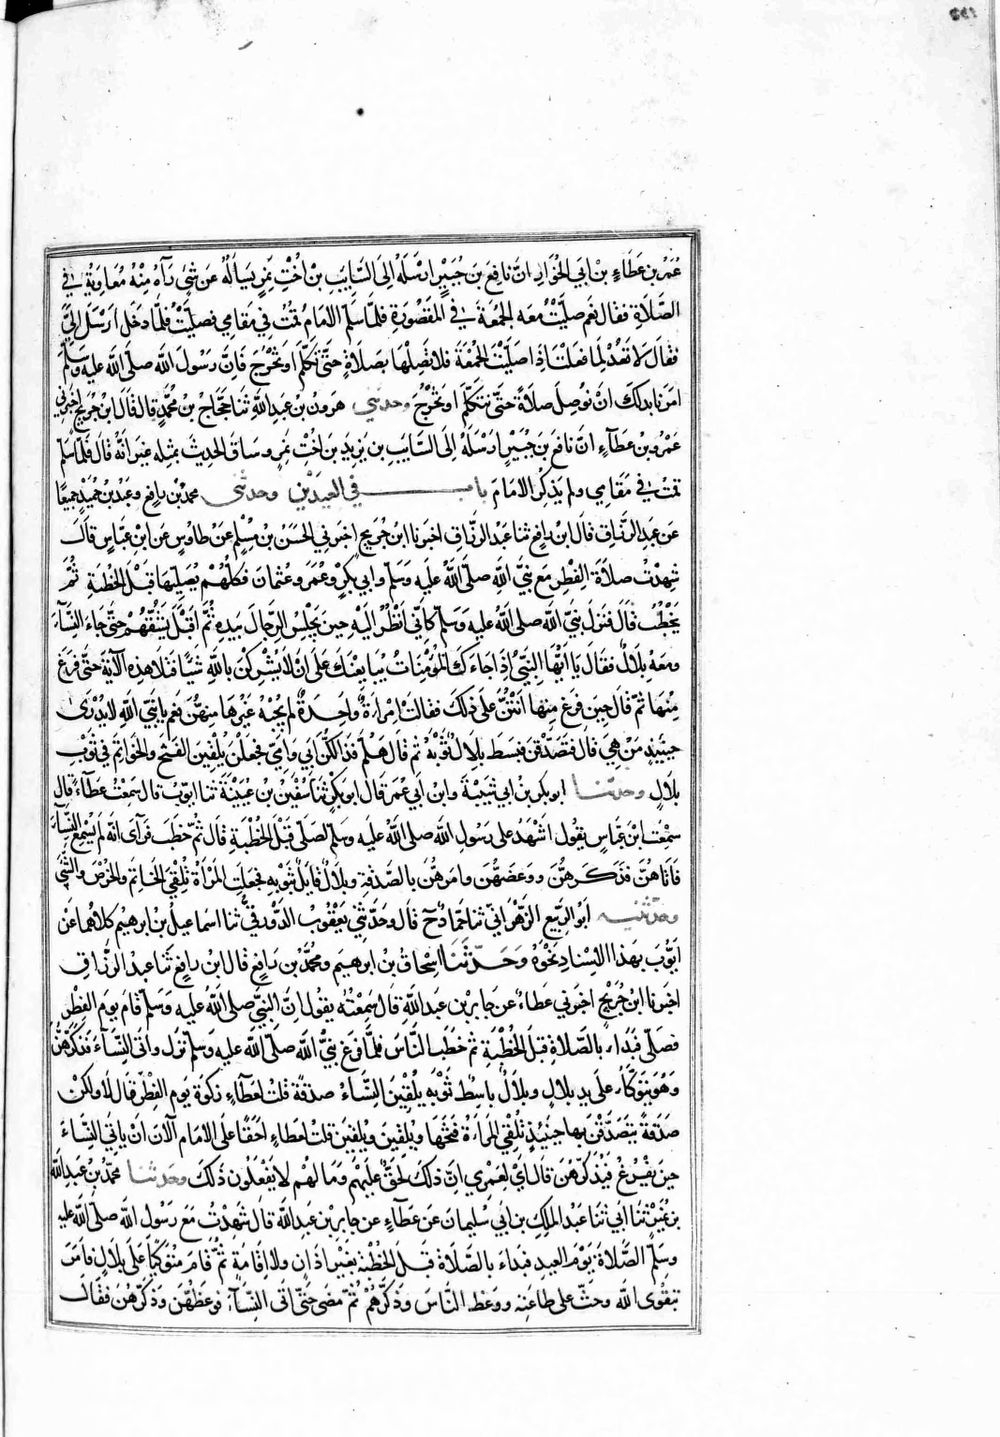 عُمَرُ بن عَطَاءِ بن ابي الخُوَارِ انّ نافِعَ بن جُبَيْرٍ ارسَلَهُ الى السَّايِبِ بن اُخْتِ نمرٍ يَسْألهُ عَن شَيْءٍ رَآهُ مِنْهُ مُعَاوِيَةُ في
الصَّلاةِ فقال نعم صلّيتُ معه الجُمُعَة في المَقْصُورَةِ فلمّا سلّم الامَامُ قمتُ في مَقامِي فصلّيتُ فلمّا دَخل ارْسَل اليَّ
فقالَ لا تعُدْ لِما فعلتَ اذا صلّيتَ الجُمُعَةَ فلا تصِلها بصَلاةٍ حتّى تكلّم او تخرُج فانّ رسُول الله صلّى الله عليه وسَلّم
امَرنا بذلكَ ان لا نوصِل صلاةً حتّى نتكلّم او نخرُج وحدثني هرون بن عبد اللهِ ثنا حَجّاج بن محمّدٍ قال قال ابن جُريجٍ اخبرني
عَمْرو بن عَطَآءٍ انّ نافعَ بن جُبَيْرٍ ارسَلهُ الى السَّايِب بن يزيد بن اُخْتِ نمرٍ وساق الحَديث بمثله غيرَ انّهُ قال فلمّا سلّم
قمتُ في مَقامِي ولم يَذكُر الامَامَ باب في العيدَين وحدثنى محمّد بن رافعٍ وعَبْد بن حُميدٍ جميعًا
عَن عبد الرَّزاق قال ابن رافعٍ ثنا عبد الرَّزاق اخبرنا ابن جُريجٍ اخبرني الحَسَن بن مُسْلِمٍ عَن طاوُسٍ عَن ابن عَبّاسٍ قال
شهِدْتُ صلاة الفِطْرِ مع نبيّ الله صلّى الله عليه وسَلّم وابي بكرٍ وعُمَر وعثمان فكلّهُم يُصَلّيها قبْل الخُطْبَةِ ثمّ
يَخْطُبُ قال فنزل نبيّ الله صلى الله عليه وسَلّم كانّي انظُرُ اليْه حين يجَلّسُ الرِّجال بيَدِه ثُمَّ اقْبَل يَشُقُّهُم حتّى جاءَ النِّسَآءَ
ومعهُ بلالٌ فقال يا ايّها النّبيّ اذا جاءَك المُؤْمِناتُ يُبايِعْنَك عَلى ان لا يُشْركن بالله شيًا فتلا هذه الآية حتّى فرَغ
مِنْهَا ثمّ قال حِين فرَغ مِنها انتُنّ على ذلكَ فقالتْ امْرَاةٌ واحِدةٌ لم يُجِبْهُ غَيْرُها مِنهُنّ نعم يا نبيّ الله لا يُدْرَى
حينئِذٍ مَن هِيَ قال فتصَدّقن فبَسَط بلالٌ ثوبهُ ثم قال هَلُمّ فدًا لكُنّ ابي وامّي فجعَلْنَ يُلْقِينَ الفَتَخَ والخَواتِمَ في ثوب
بلالٍ وحدثنـا ابو بكر بن ابي شَيْبَةَ وابن ابي عُمَر قال ابو بكرٍ ثنا سُفيٰن بن عُيَيْنَةَ ثنا ايّوب قال سَمِعْتُ عَطآءً قال
سمعتُ ابن عَبّاسٍ يقُول اشْهَدُ على رَسُولِ الله صلى الله عليه وسلّم لصَلّى قبْل الخُطْبَةِ قال ثمّ خطَب فرَأى انّه لم يُسْمِع النِّسَآءَ
فاتاهُنّ فذكّرهُنّ ووعَظهُنّ وامَرهُنّ بالصَّدَقةِ وبلالٌ قايلٌ بثَوبهِ فجعَلتِ المَرْأةُ تُلقي الخاتمَ والخُرْصَ والشّيَ
وحدّثنيه ابو الرَّبيع الزَّهْرانيّ ثنا حمّادٌ ح قال وحَدّثني يعْقُوب الدَّوْرَقيُّ ثنا اسماعيل بن ابرهيم كلاهُما عَن
ايّوبَ بهَذا الاسْنادِ نحوَهُ وَحَدّثَنَا اسْحاق بن ابرهيم ومحمّد بن رافعٍ قال ابن رافعٍ ثنا عبد الرَّزاق
اخبرنا ابن جُريجٍ اخبرني عَطاءٌ عَن جابر بن عبد اللهِ قال سَمِعْتهُ يقُول انّ النبيّ صلى الله عليه وسَلّم قامَ يوم الفِطْرِ
فصَلّى فبدَأ بالصّلاةِ قبل الخُطْبَةِ ثم خطَب النّاسَ فلمّا فَرغ نبيّ الله صلّى الله عليه وسلّم نزَل واتى النّسآءَ فذكّرهُنّ
وَهُوَ يَتَوَكّأُ على يدِ بلالٍ وبلالٌ باسِطٌ ثَوْبَه يُلْقِينَ النّسَاءُ صدقةً قلتُ لعَطآءٍ زكوةَ يوم الفِطْر قال لا ولكن
صَدَقةً يتصَدّقن بها حينئِذٍ تُلْقِي المَرأةُ فتَخَها ويُلْقِينَ ويُلْقِينَ قلتُ لعطاءٍ احَقًّا على الامَام الآن ان ياتي النّسَاءَ
حينَ يَفْرُغُ فيُذكّرهُنّ قال اي لعَمْري انّ ذلك لحَقٌّ عليهِم ومَا لهُم لا يَفْعَلُون ذلكَ وحدثنـا محمّد بن عَبدِ الله
بن نُمَيْرٍ ثنا ابي ثنا عَبد الملِكِ بن ابي سُليمان عَن عَطآءٍ عن جابر بن عبد الله قال شهِدْتُ مَع رسُول الله صلّى الله عليه
وسلّم الصَّلاةَ يَوْمَ العيدِ فبدَاءَ بالصَّلاة قبل الخُطْبَةِ بغير اذانٍ ولا اقامَةٍ ثُمّ قامَ مُتوَكّيًا على بلالٍ فأمَرَ
بتقْوَى اللّه وحثّ على طاعَتِه ووعَظ النّاسَ وذكّرهُمْ ثُمّ مضى حَتّى اتى النّسَآءَ فوعظهُنّ وذكّرهُنّ فقال